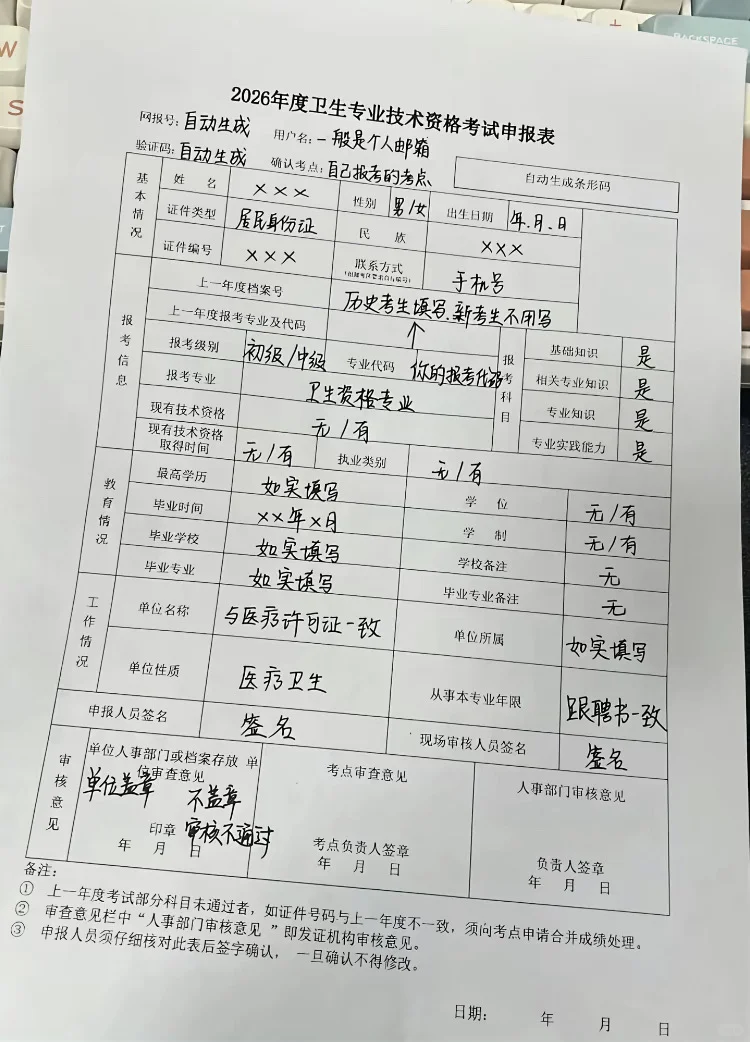 W
S
+
BACKSPACE
2026年度卫生专业技术资格考试申报表
网报号: 自动生成 用户名: 一般是个人邮箱
验证码: 自动生成 确认考点: 自己报考的考点
自动生成条形码
基本情况
姓 名 ××× 性别 男/女 出生日期 年.月.日
证件类型 居民身份证 民 族 ×××
证件编号 ××× 联系方式 手机号
报考信息
上一年度档案号 历史考生填写.新考生不用写
上一年度报考专业及代码 ↑
报考级别 初级/中级 专业代码 你的报考代码
报考专业 卫生资格专业
现有技术资格 无/有
现有技术资格取得时间 无/有 执业类别 无/有
报考科目
基础知识 是
相关专业知识 是
专业知识 是
专业实践能力 是
教育情况
最高学历 如实填写 学 位 无/有
毕业时间 ××年×月 学 制 无/有
毕业学校 如实填写 学校备注 无
毕业专业 如实填写 毕业专业备注 无
工作情况
单位名称 与医疗许可证一致 单位所属 如实填写
单位性质 医疗卫生 从事本专业年限 跟聘书一致
申报人员签名 签名 现场审核人员签名 签名
审核意见
单位人事部门或档案存放 单
位审查意见
单位盖章 不盖章
印章 审核不通过
年 月 日
考点审查意见
考点负责人签章
年 月 日
人事部门审核意见
负责人签章
年 月 日
备注:
① 上一年度考试部分科目未通过者，如证件号码与上一年度不一致，须向考点申请合并成绩处理。
② 审查意见栏中“人事部门审核意见 ”即发证机构审核意见。
③ 申报人员须仔细核对此表后签字确认， 一旦确认不得修改。
日期: 年 月 日